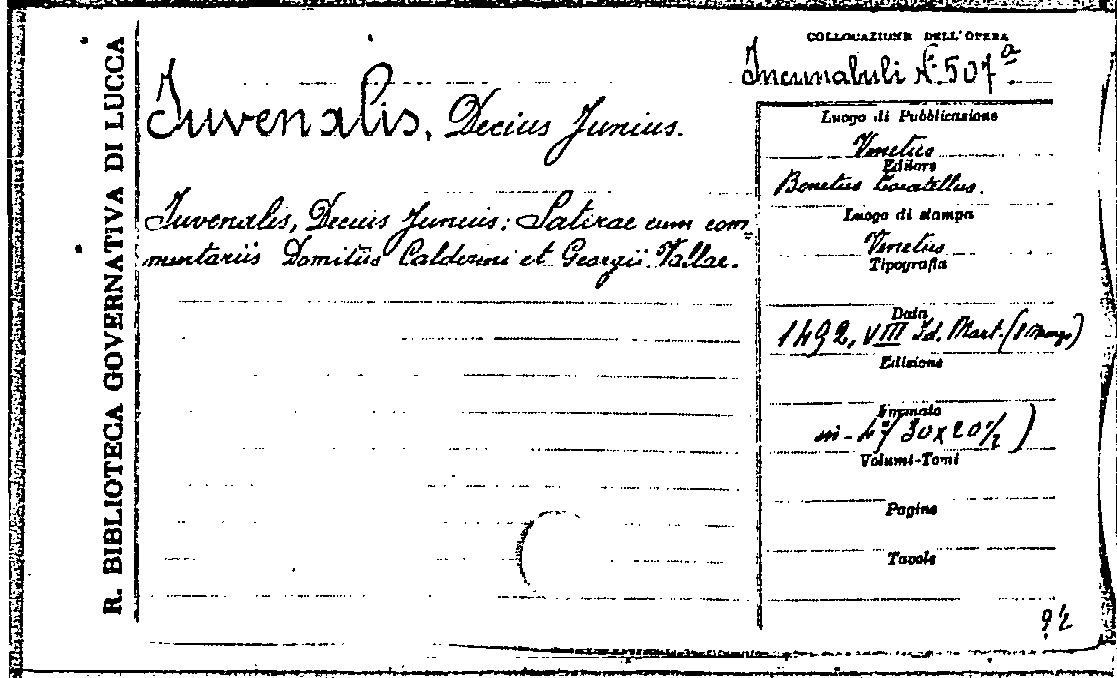 R. BIBLIOTECA GOVERNATIVA DI LUCCA
Iuvenalis, Decius Junius.
Iuvenalis, Decius Junius: Satirae cum com=
mentariis Domitius Calderini et Georgii Vallae.
COLLOCAZIONE DELL'OPERA
Incunabuli N. 507 a
Luogo di Pubblicazione
Venetus
Editore
Bonetus Locatellus.
Luogo di stampa
Venetus
Tipografia
Data
1492, VIII Id. Mart. (8 Marzo)
Edizione
Formato
in-4° (30x20 1/2)
Volumi-Tomi
Pagine
Tavole